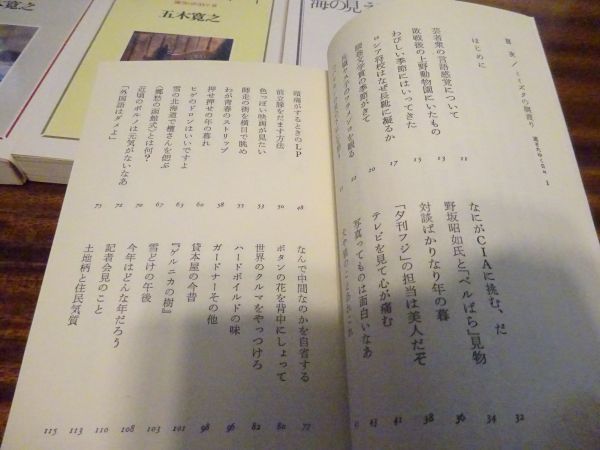 五木寛之
五木寛之
海の見え
目次/ミミズクの夜遊び 重箱の隅 1
はじめに
芸者衆の言語感覚について 11
敗戦後の上野動物園にいたもの 13
わびしい季節にはいってきた 15
ロシア将校はなぜ長靴に凝るか 17
なにがCIAに挑む、だ 32
野坂昭如氏と『ベルばら』見物 34
対談ばかりなり年の暮 36
「夕刊フジ」の担当は美人だぞ 38
テレビを見て心が痛む 41
写真ってものは面白いなあ 43
頭痛がするときのLP 48
前立腺をだます方法 50
色っぽい映画が見たい 53
師走の街を横目で眺め 55
わが青春のストリップ 58
押せ押せの年の暮れ 60
ヒゲのドロンはいいですよ 63
雪の北海道で檀さんを偲ぶ 65
〈郷愁の函館式〉とは何? 67
近頃のポルノは元気がないなあ 70
「外国語はダメよ」 72
75
なんで中間なのかを自省する 77
ボタンの花を背中にしょって 80
世界のクルマをやっつけろ 82
ハードボイルドの味 94
ガードナーその他 96
貸本屋の今昔 98
『ゲルニカの樹』 101
雪どけの午後 103
今年はどんな年だろう 108
記者会見のこと 110
土地柄と住民気質 113
115